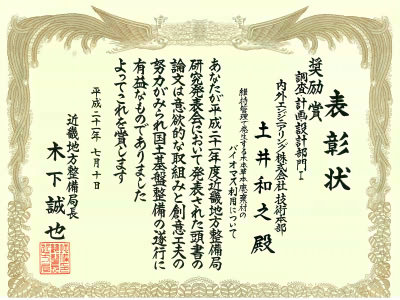 表彰状
奨励賞
調査・計画・設計部門Ⅰ
内外エンジニアリング株式会社 技術本部
土井和之殿
維持管理で発生する木本草本廃棄材の
バイオマス利用について
あなたが平成二十一年度近畿地方整備局
研究発表会において発表された頭書の
論文は意欲的な取組みと創意工夫の
努力がみられ国土基盤整備の遂行に
有益なものでありました
よってこれを賞します
平成二十一年七月十日
近畿地方整備局長
木下誠也